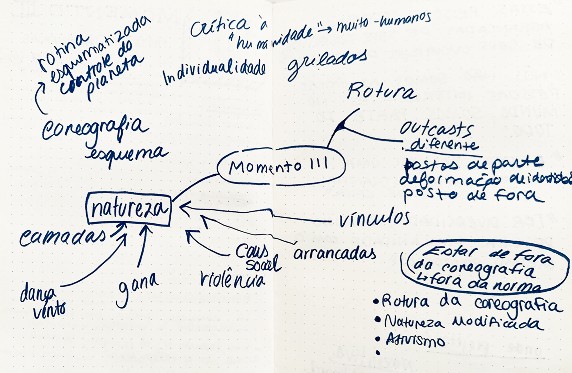 Crítica à
"humanidade" → muito-humanos
Individualidade
grilados
rotina
esquematizada
controle do
planeta
coreografia
esquema
Rotura
outcasts
diferente
postos de parte
deformação de identidade
posto de fora
Momento III
natureza
camadas
dança
vento
gana
caus
social
violência
arrancadas
vínculos
Estar de fora
da coreografia
↳ fora da norma
• Rotura da coreografia
• Natureza Modificada
• Ativismo
•